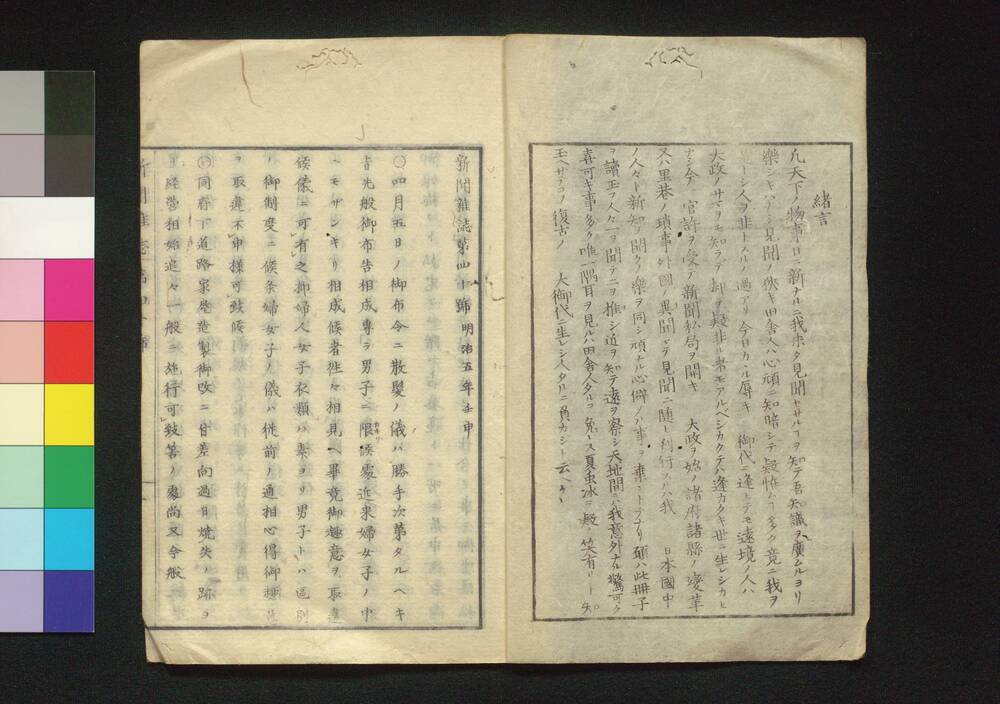 緒言
凡天下ノ物事日ニ新タルニ我未タ見聞セサルヿヲ知テ吾知識ヲ廣ムルヨリ
樂シキハナシ見聞ノ狭キ田舎人ハ心頑ニ知暗シテ疑怪ムヿ多ク竟ニ我ヲ
是トシ人ヲ非トスルノ過アリ今日カヽル辱キ 御代ニ逢ヒテモ遠境ノ人ハ
大政ノサマヲモ知ラテ却テ疑非ル者モアルベシカクテハ逢カタキ世ニ生レシカヒ
ナシ今 官許ヲ受テ新聞私局ヲ開キ 大政ヲ始メ諸府諸縣ノ変革
又ハ里巷ノ瑣事外國ノ異聞マテ見聞ニ随ヒ刊行スルハ我 日本國中
ノ人々ト新知ヲ開クノ樂ヲ同シ頑ナル心僻ノ事ヲ棄ントナリ願ハ此冊子
ヲ讀玉フ人々一ヲ聞テ二ヲ推シ近ヲ知テ遠ヲ察シ天地間ニハ我意外ナル驚可ク
喜可キ事多ク唯一隅目ヲ見ルハ田舎人タルヿヲ免レス夏虫氷ニ疑ノ笑有リト知
玉ヘサテコソ復古ノ 大御代ニ生レシ人タルニ負カシト云ヘリ
新聞雑誌第四十號 明治五年壬申
〇四月五日ノ御布令ニ散髪ノ儀ハ勝手次第タルヘキ
旨先般御布告相成專ラ男子ニ限候處近来婦女子ノ中
ヘモザンキリ相成候者往々相見ヘ畢竟御趣意ヲ取違
候儀ニ可有之抑婦人女子衣類ハ素ヨリ男子トハ區別
ノ御制度ニ候条婦女子ノ儀ハ従前ノ通相心得御趣意
ヲ取違不申様可致候
〇同府下道路家屋造製御改ニ付差向過日焼失ノ跡ヨ
リ経営相始追々一般ニ施行可致筈ノ處尚又今般